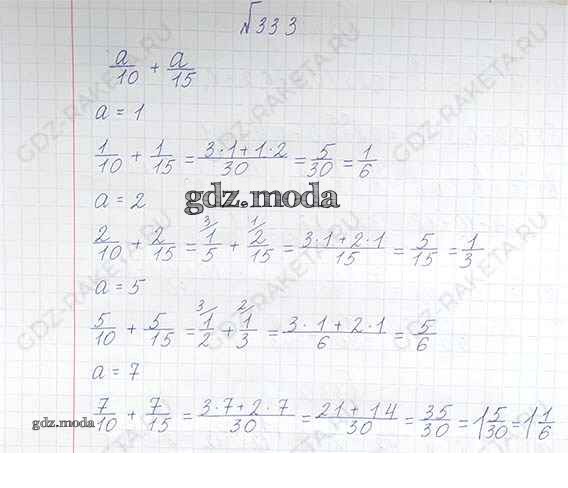 №333
a/10 + a/15
a = 1
1/10 + 1/15 = 3·1+1·2/30 = 5/30 = 1/6
a = 2
gdz.moda
2/10 + 2/15 = 3/ 1/5 + 1/ 2/15 = 3·1+2·1/15 = 5/15 = 1/3
a = 5
5/10 + 5/15 = 3/ 1/2 + 2/ 1/3 = 3·1+2·1/6 = 5/6
a = 7
7/10 + 7/15 = 3·7+2·7/30 = 21+14/30 = 35/30 = 1 5/30 = 1 1/6
gdz.moda
GDZ-RAKETA.RU
GDZ-RAKETA.RU
GDZ-RAKETA.RU
GDZ-RAKETA.RU